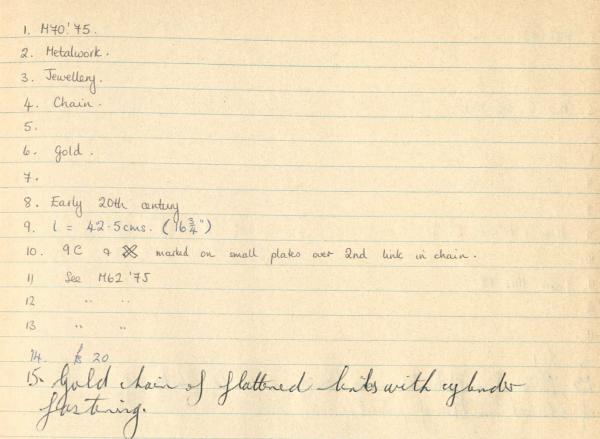 1. M70.'75.
2. Metalwork.
3. Jewellery.
4. Chain.
5.
6. Gold.
7.
8. Early 20th century
9. l = 42.5cms. (16 3/4")
10. 9C & marked on small plates over 2nd link in chain.
11 See M62 '75
12 " "
13 " "
14. 20
15. Gold chain of flattened links with cylinder
fastening.